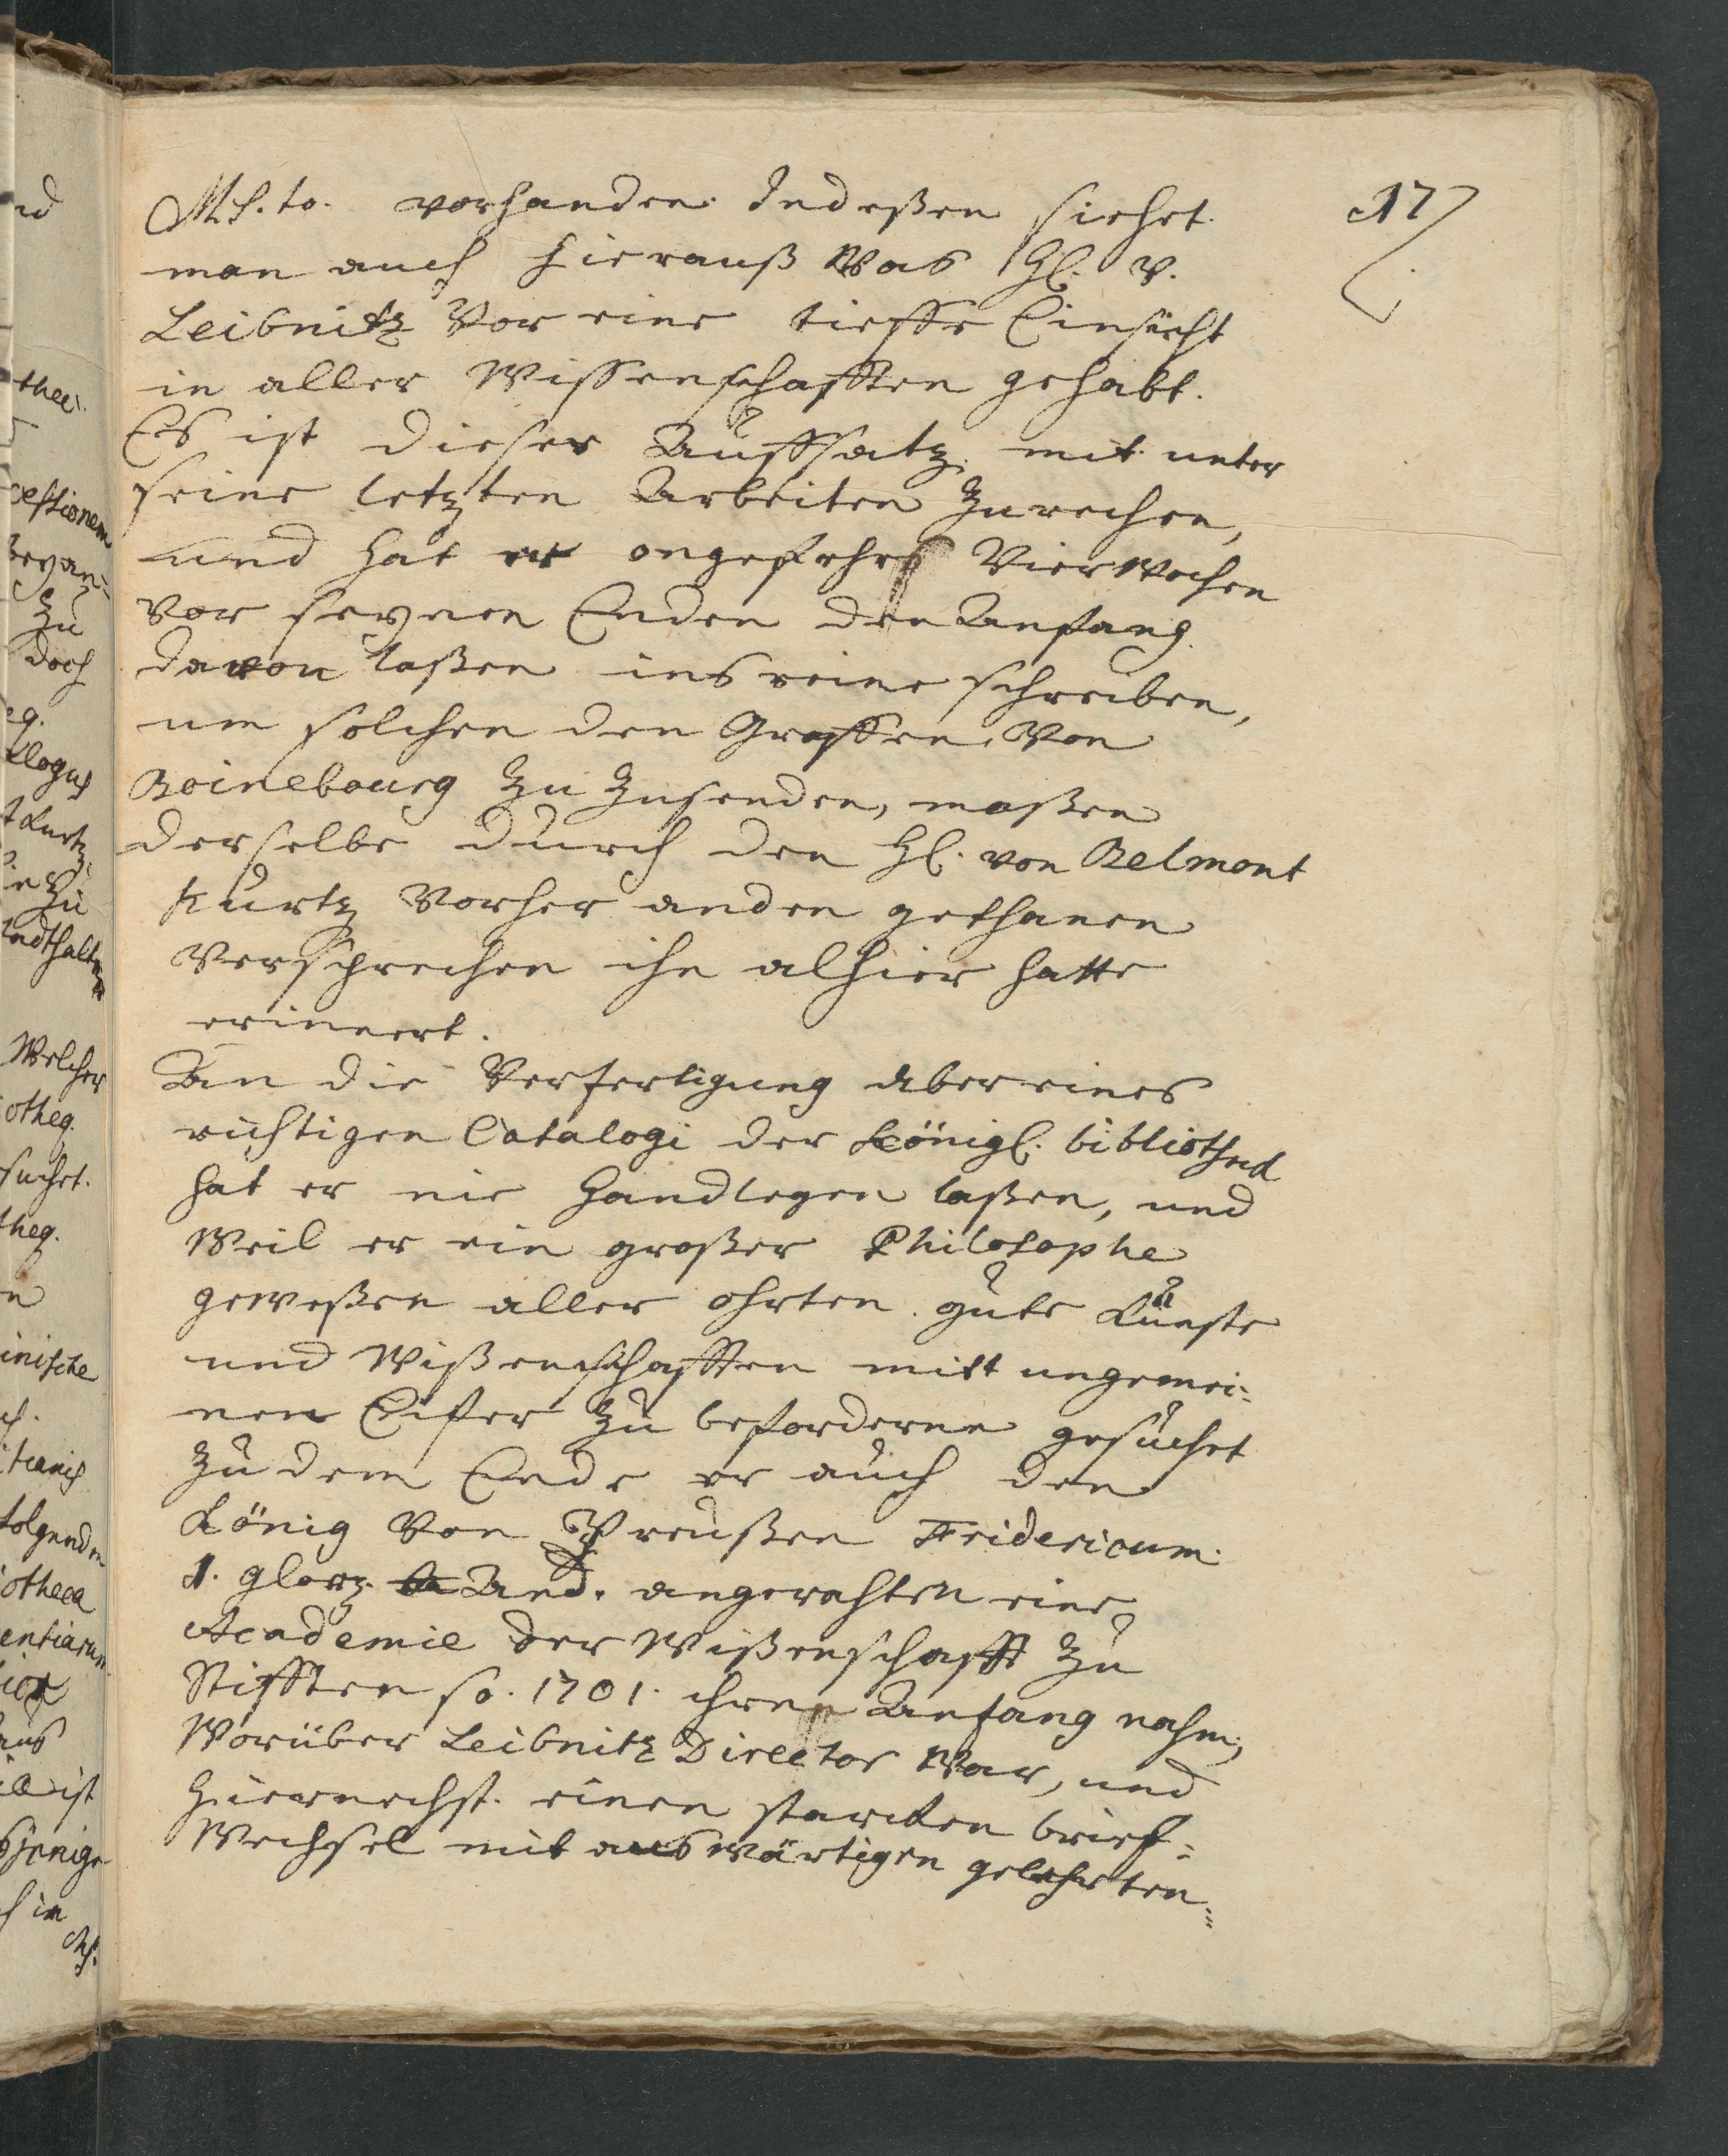 17
MS.to. vorhanden. Indeßen siehet
man auch hierauß Was H. v.
Leibnitz Vor eine tieffe Einsicht
in aller Wissenschafften gehabt.
Es ist dieser Auffsatz mit unter
seine letzten Arbeiten Zurechen,
und hat er ongefehr Vier Wochen
Vor seynen Enden den Anfang
davon laßen ins reine schreiben,
um solchen den Graffen Von
Boinebourg Zu Zusenden, maßen
derselbe durch den H. von Belmont
Kurtz Vorher anden gethanen
Versprechen ihn alhier hatte
erinnert.
An die Verfertigung aber eines
richtigen Catalogi der Königl. bibliothec
hat er nie Handlegen laßen, und
Weil er ein großer Philosophe
geweßen aller ohrten gute Künste
und Wißenschafften mitt ungemei-
nen Eifer Zu befordern gesuchet
Zu dem Ende er auch den
König Von Preußen Fridericum
I. glorz. And. angerahten eine
Academie der Wißenschafft Zu
Stifften so. 1701. ihren Anfang nahm,
Worüber Leibnitz Director War, und
hiernechst einen starcken brief-
Wechsel mit auswärtigen gelehrten-